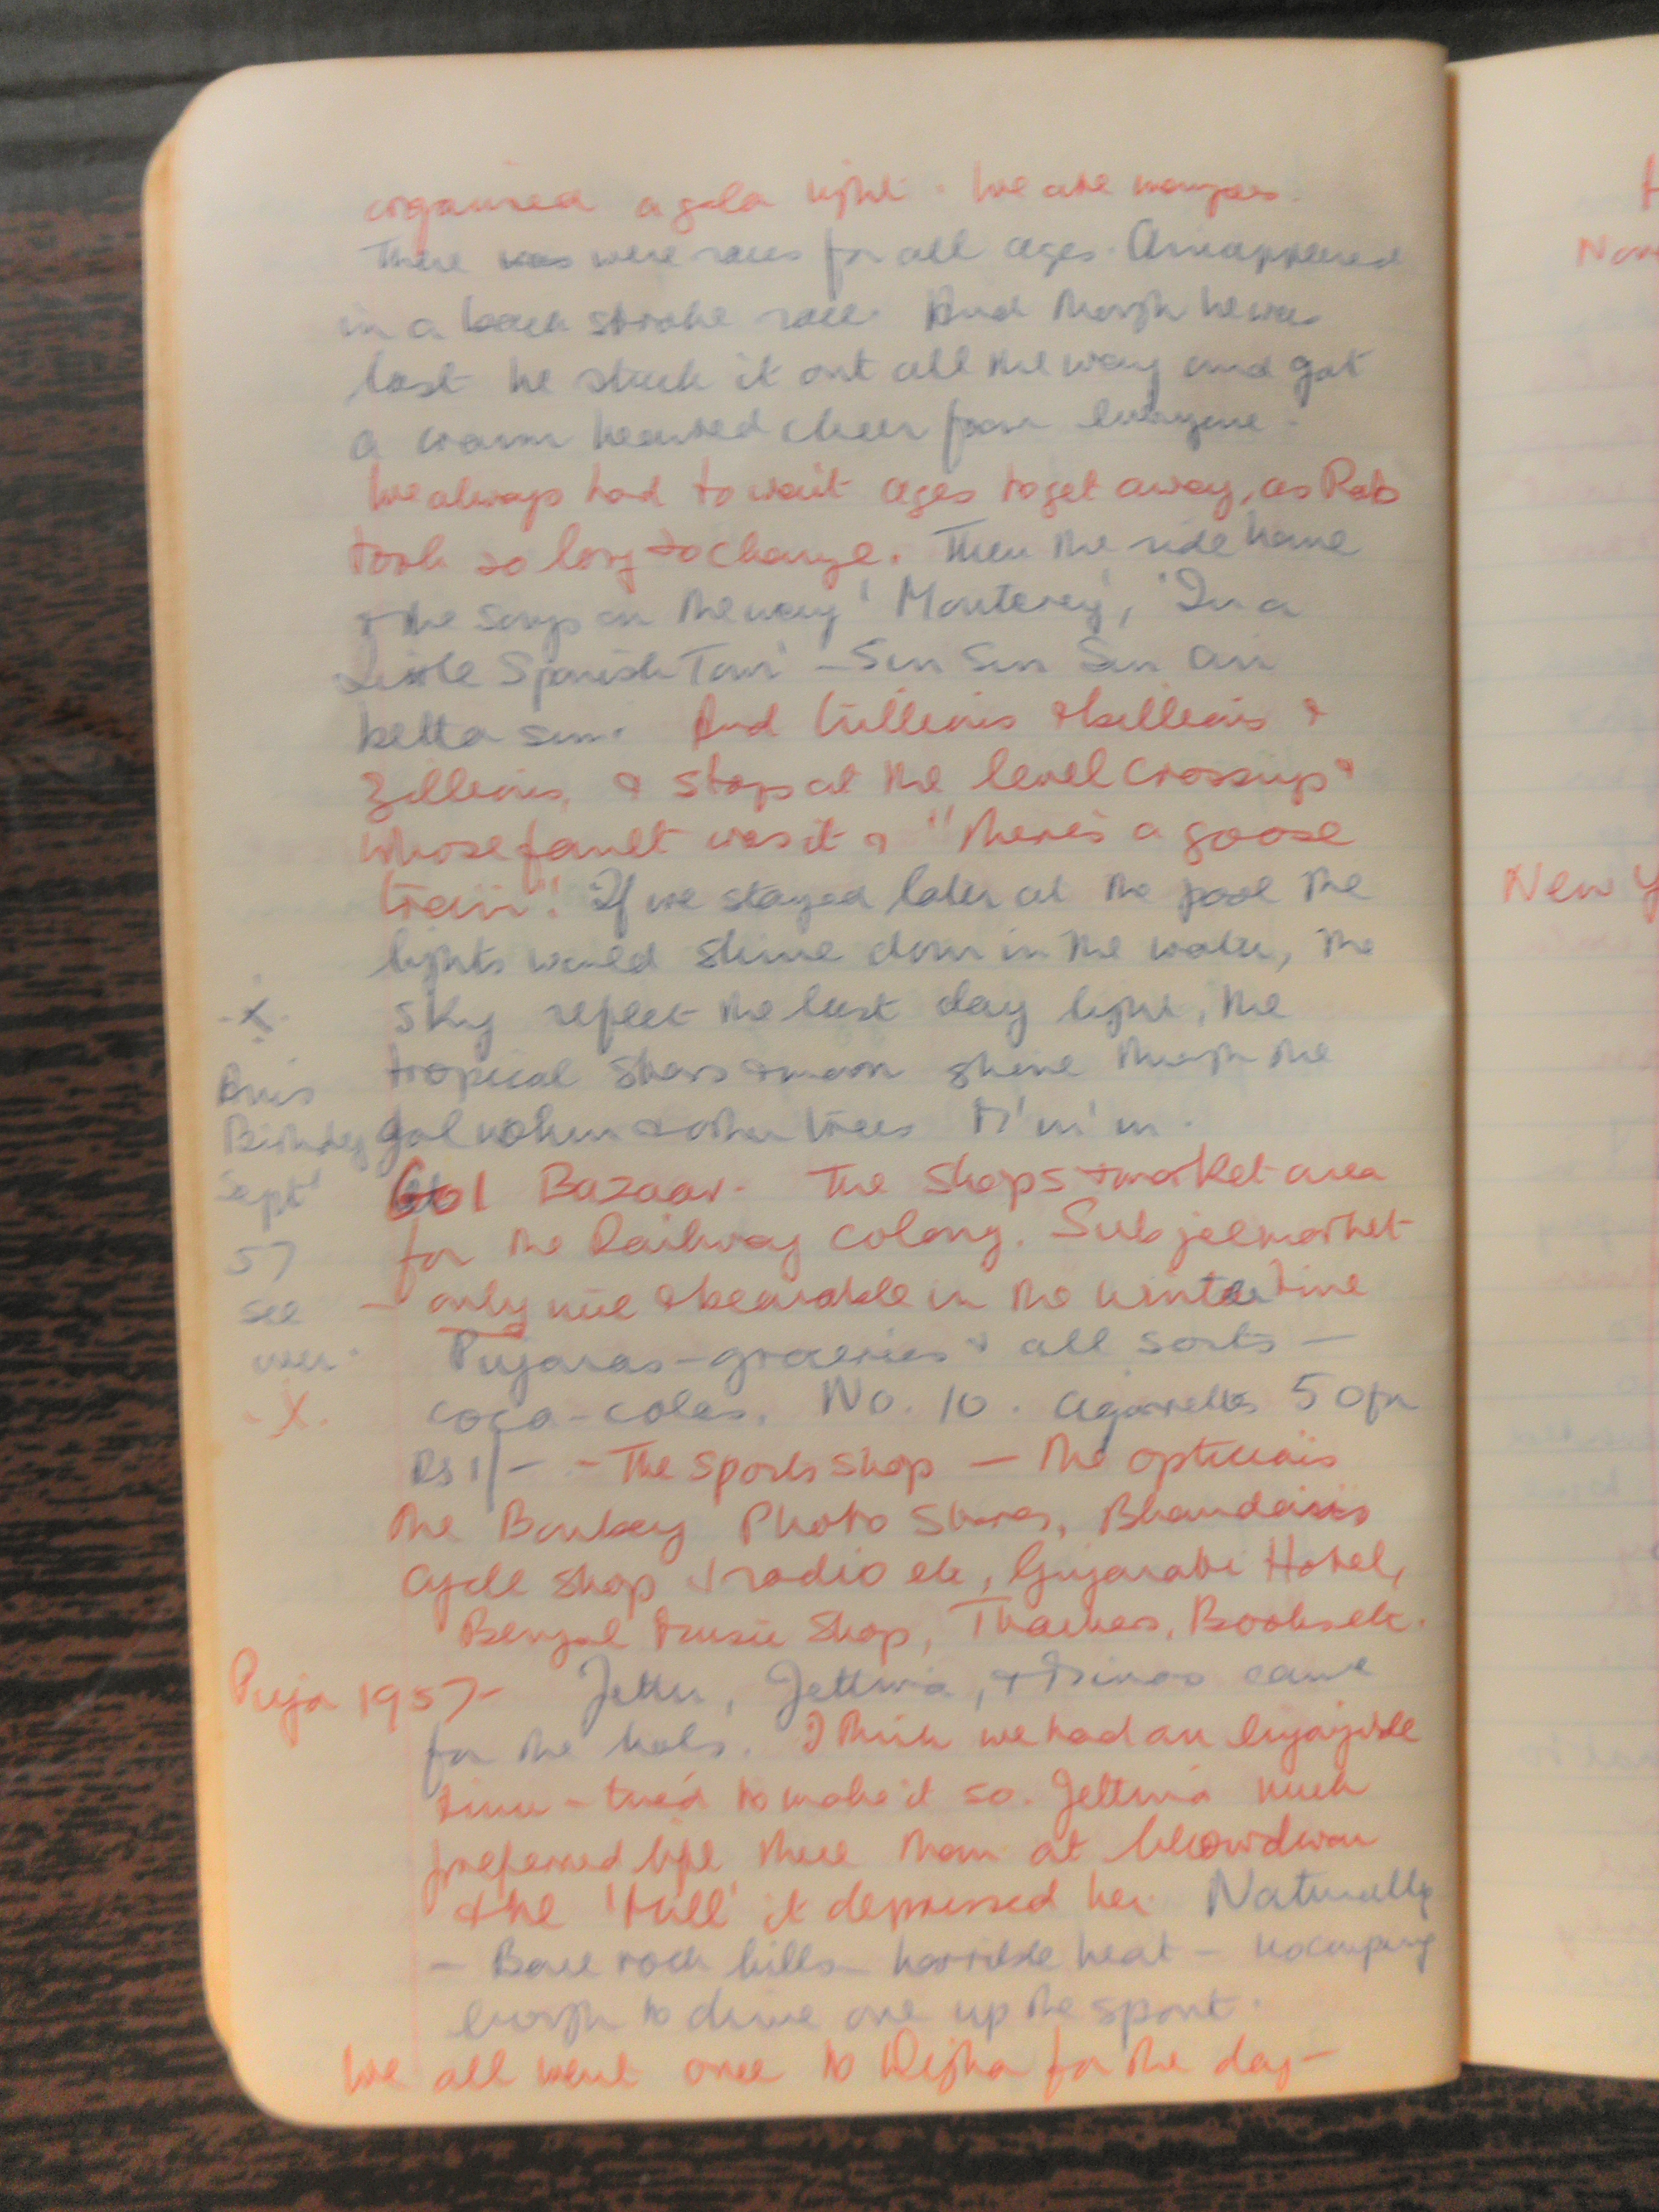 organised a gala night. We ate
There was were races for all ages. Ani appeared
in a back stroke race. And though he was
last he stuck it out all the way and got
a warm hearted cheer from everyone.
We always had to wait ages to get away, as Rab
took so long to change. Then the ride home
& the songs on the way 'Monterey', 'In a
Little Spanish Town' - Sun Sun Sun
betta sun. And trillions & billions &
zillions, & stops at the level crossings &
whose fault was it & "there's a goose
train". If we stayed later at the pool the
lights would shine down in the water, the
sky reflect the last day light, the
tropical stars & moon shine through the
gol mohur & other trees M'm'm.
Gol Bazaar. The shops & market area
for the Railway colony. Subjee market
- only nice & bearable in the winter time
Pujaras - groceries & all sorts -
coca-colas, No. 10. cigarettes 50 for
Rs 1/- - The sports shop - The opticians
The Bombay Photo Stores, Bhandari's
cycle shop & radio etc, Gujarati Hotel,
Bengal Music Shop, Thackers, Books etc.
-X-
Anis
Birthday
Sept
57
see
over.
-X-
Puja 1957 - Jetti, & came
for the hols. I think we had an enjoyable
time - tried to make it so. much
preferred life there than at
& the 'hill' it depressed her. Naturally
- Bare rock hills - horrible heat - no company
enough to drive one up the spout.
We all went once to Digha for the day -
Nov
New Y